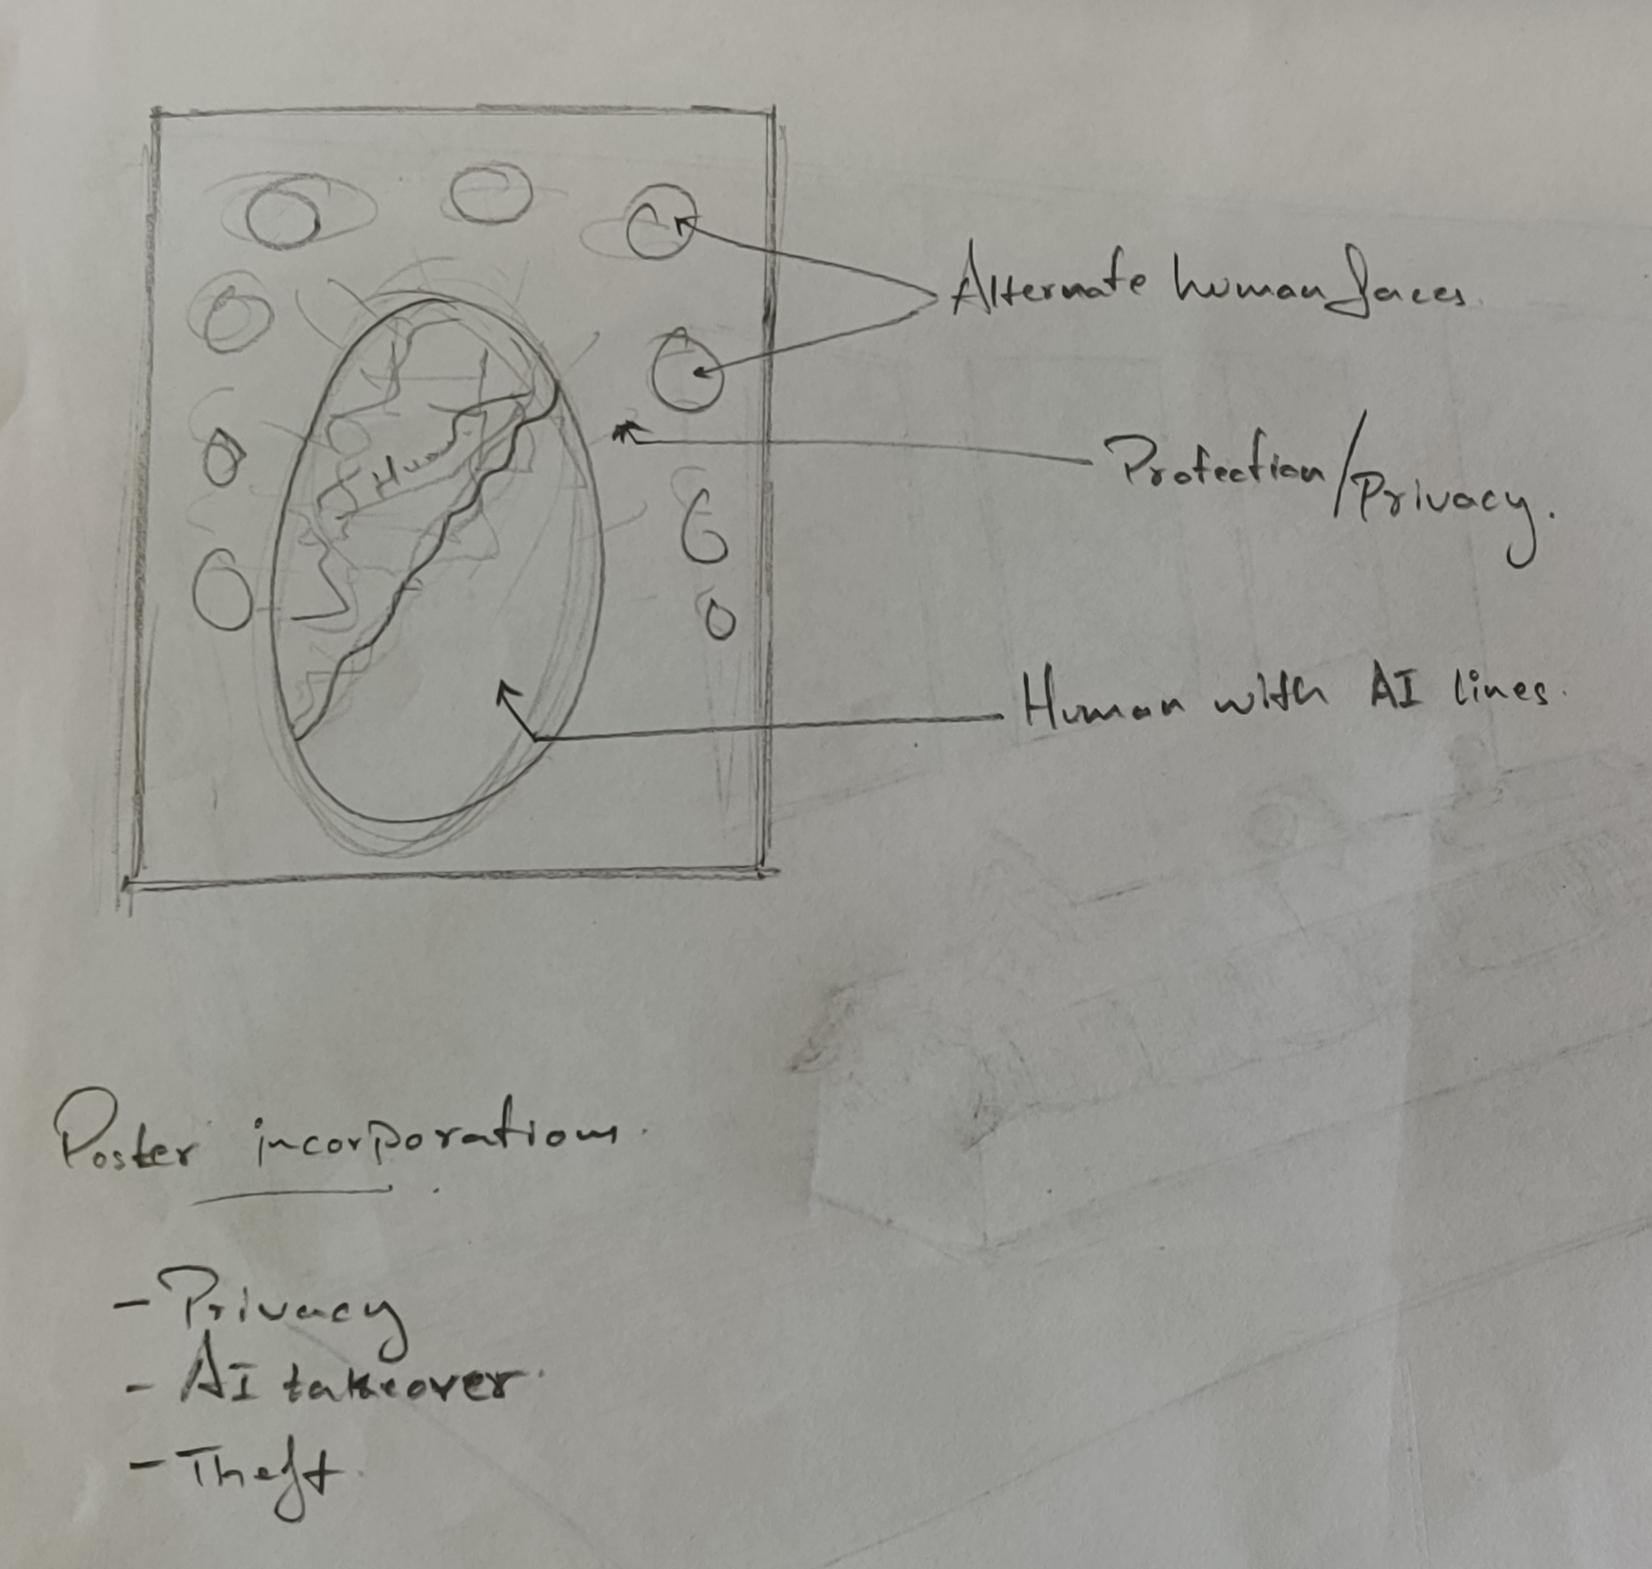 Alternate human faces.
Protection/Privacy.
Human with AI lines.
Poster incorporations.
- Privacy
- AI takeover.
- Theft.